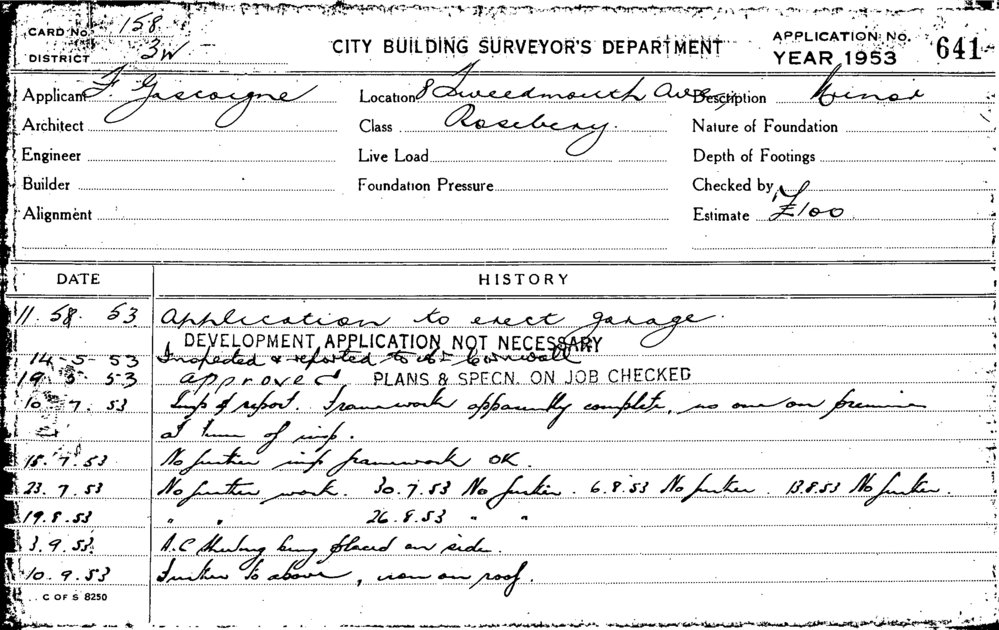 CARD No. 158
DISTRICT 3W
CITY BUILDING SURVEYOR'S DEPARTMENT
APPLICATION No. 641
YEAR 1953
Applicant F Gascoigne Location 8 Tweedmouth Ave., Description Minor
Architect Class Rosebery. Nature of Foundation
Engineer Live Load Depth of Footings
Builder Foundation Pressure Checked by
Alignment Estimate £100
DATE HISTORY
11. 58. 53 Application to erect garage.
DEVELOPMENT APPLICATION NOT NECESSARY
14-5-53 Inspected & reported to Cornwall
19 5 53 approved PLANS & SPECN. ON JOB CHECKED
10. 7. 53 Insp & report. Framework apparently complete, no one on premises
at time of insp.
15.7.53 No further insp framework OK.
23.7.53 No further work. 30.7.53 No further. 6.8.53 No further. 13.8.53 No further.
19.8.53 " " 26.8.53 " "
3.9.53 A.C Sheeting being placed on side.
10.9.53 Further to above, iron on roof.
C OF S 8250